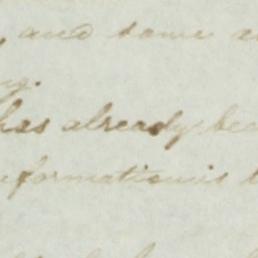 , and some a
ng.
has already bee
nformation is t